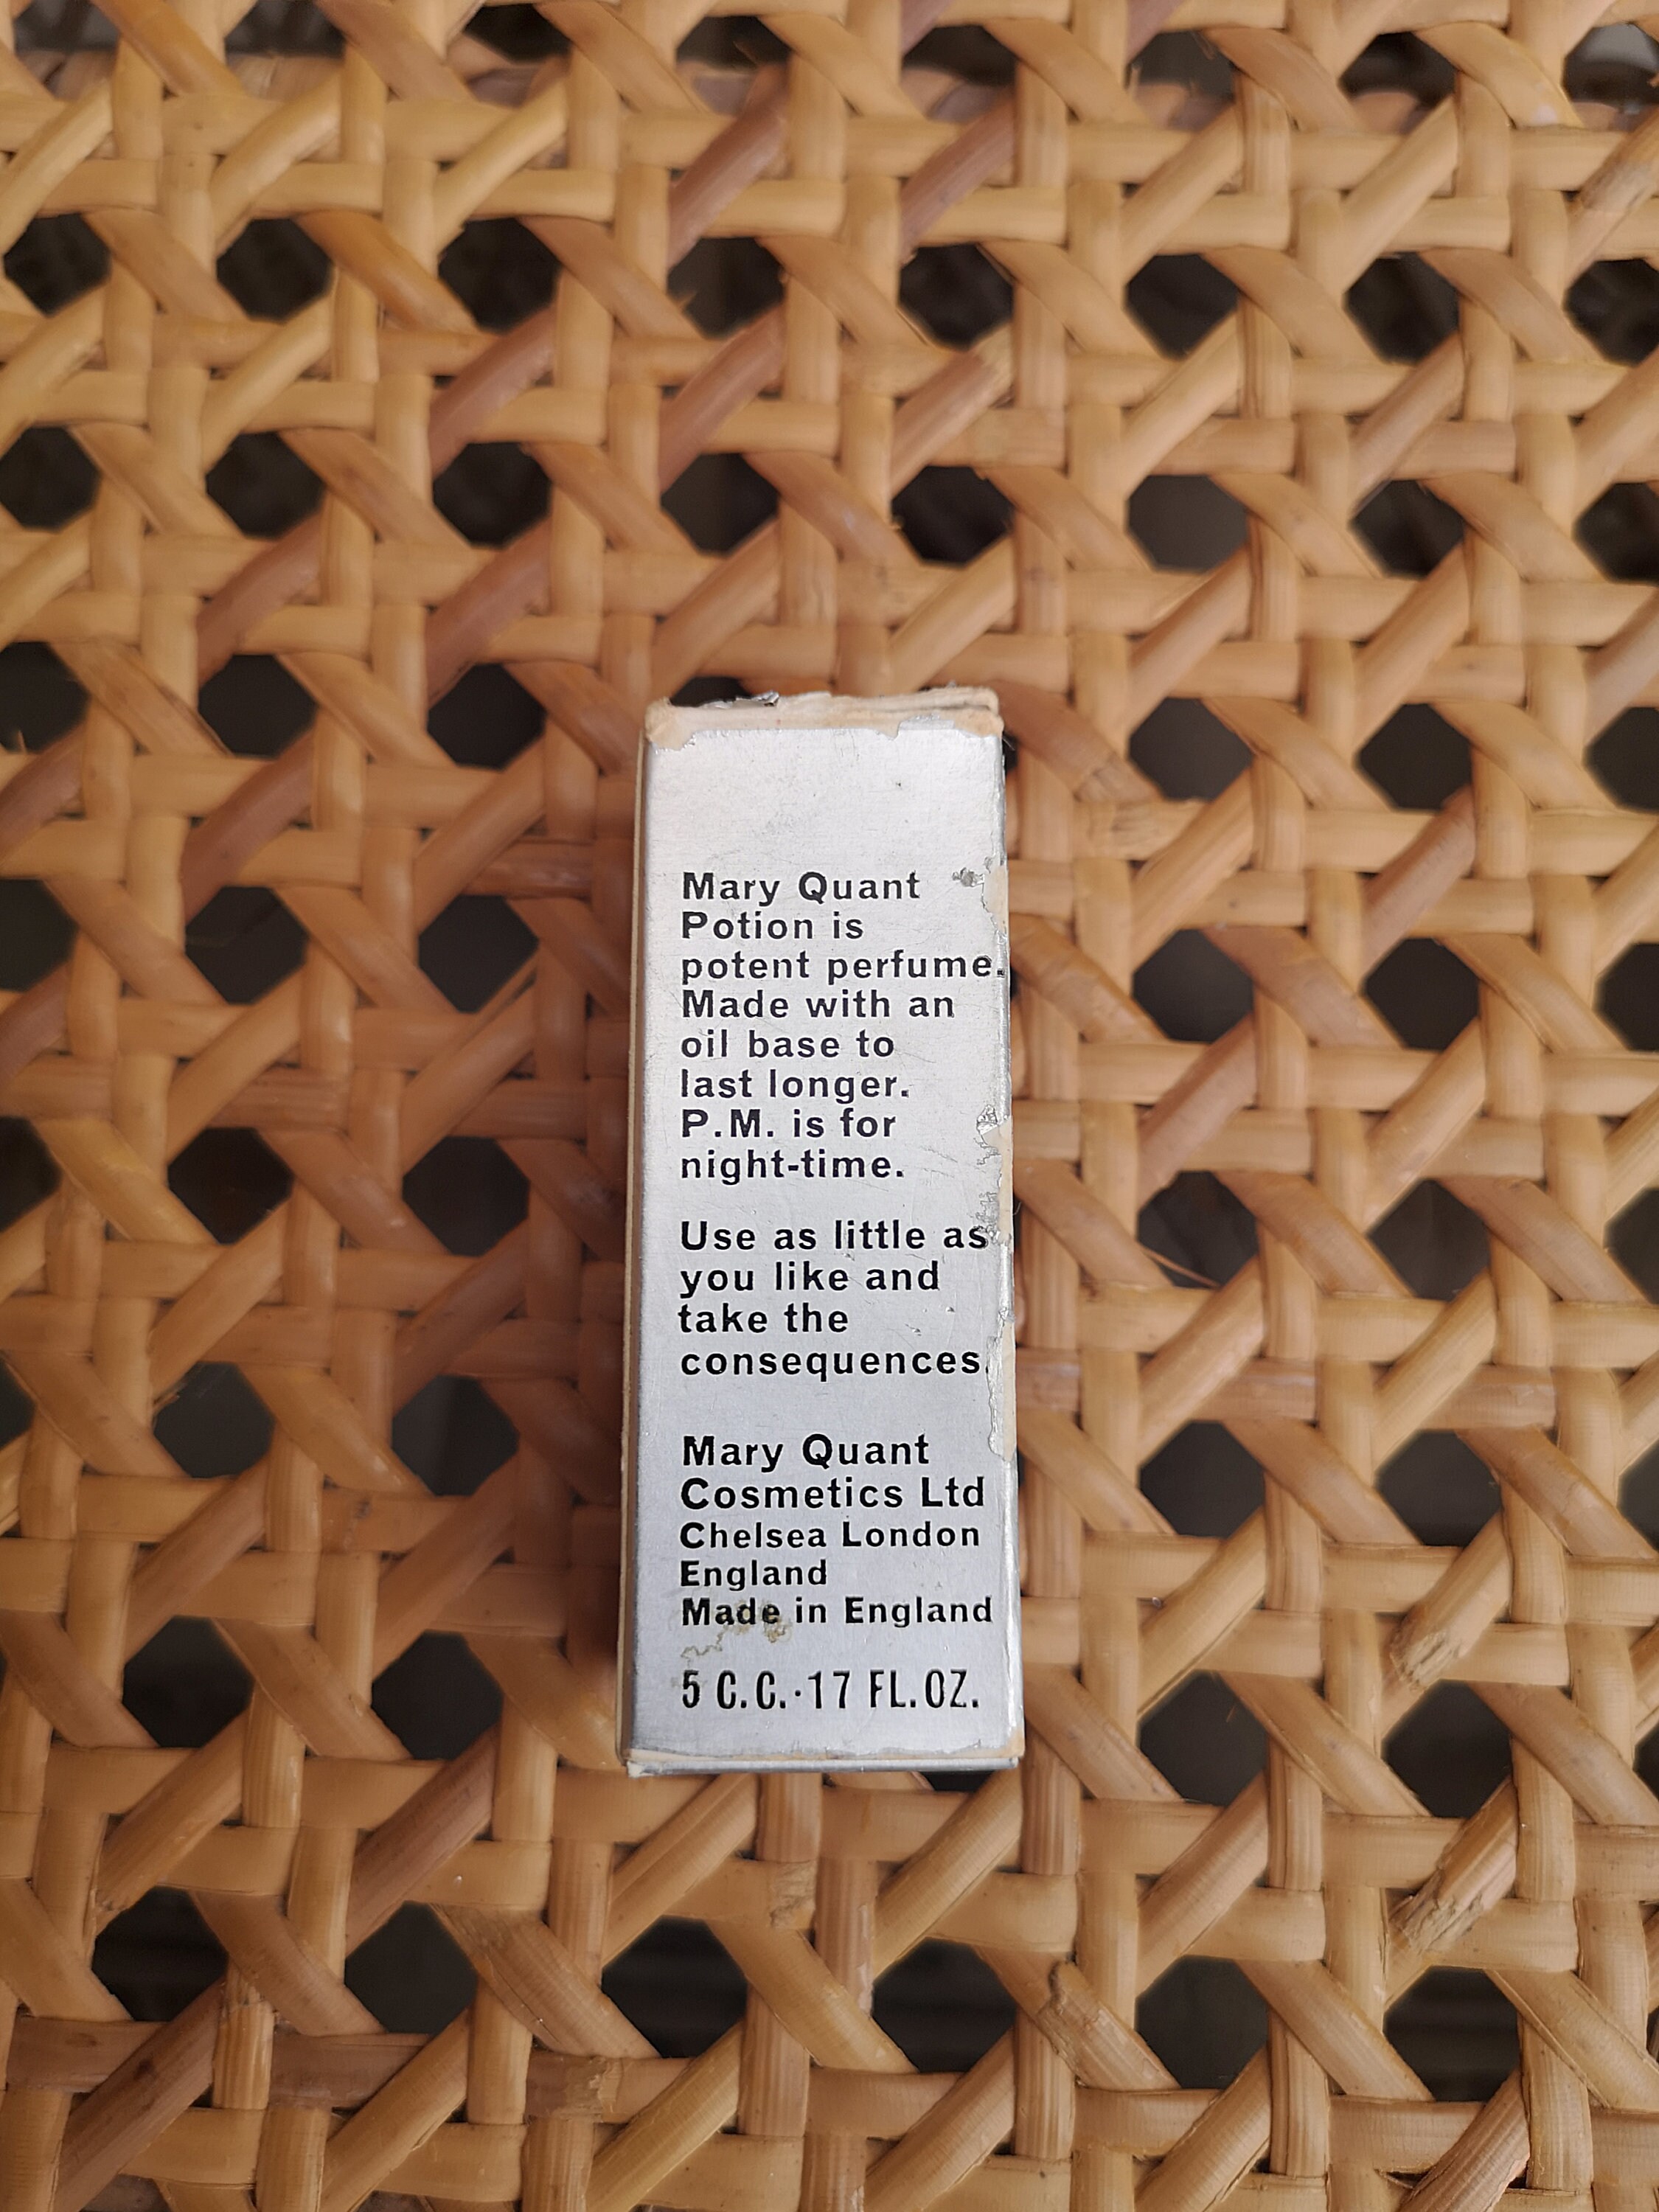 Mary Quant
Potion is
potent perfume.
Made with an
oil base to
last longer.
P.M. is for
night-time.
Use as little as
you like and
take the
consequences.
Mary Quant
Cosmetics Ltd
Chelsea London
England
Made in England
5 C.C.·17 FL.OZ.